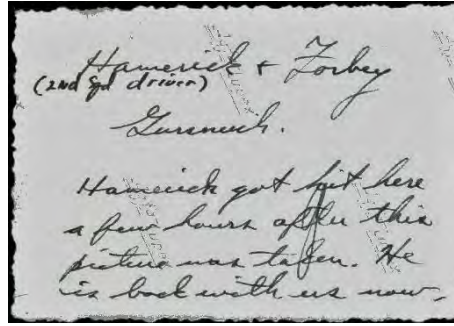 Hamerick + Forbey
(2nd Sqd driver)
Hamerick got hit here
a few hours after this
picture was taken. He
is back with us now.